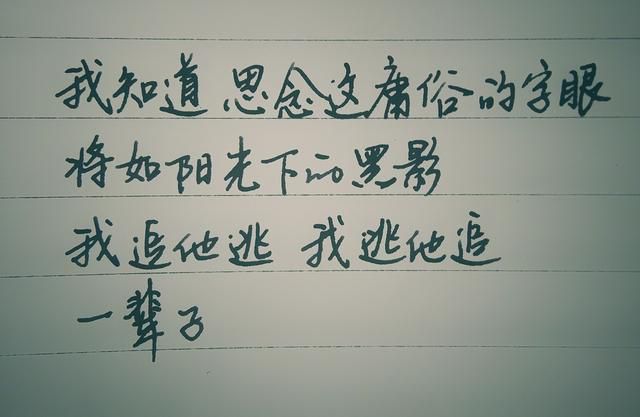 我知道 思念这庸俗的字眼
将如阳光下的黑影
我追他逃 我逃他追
一辈子